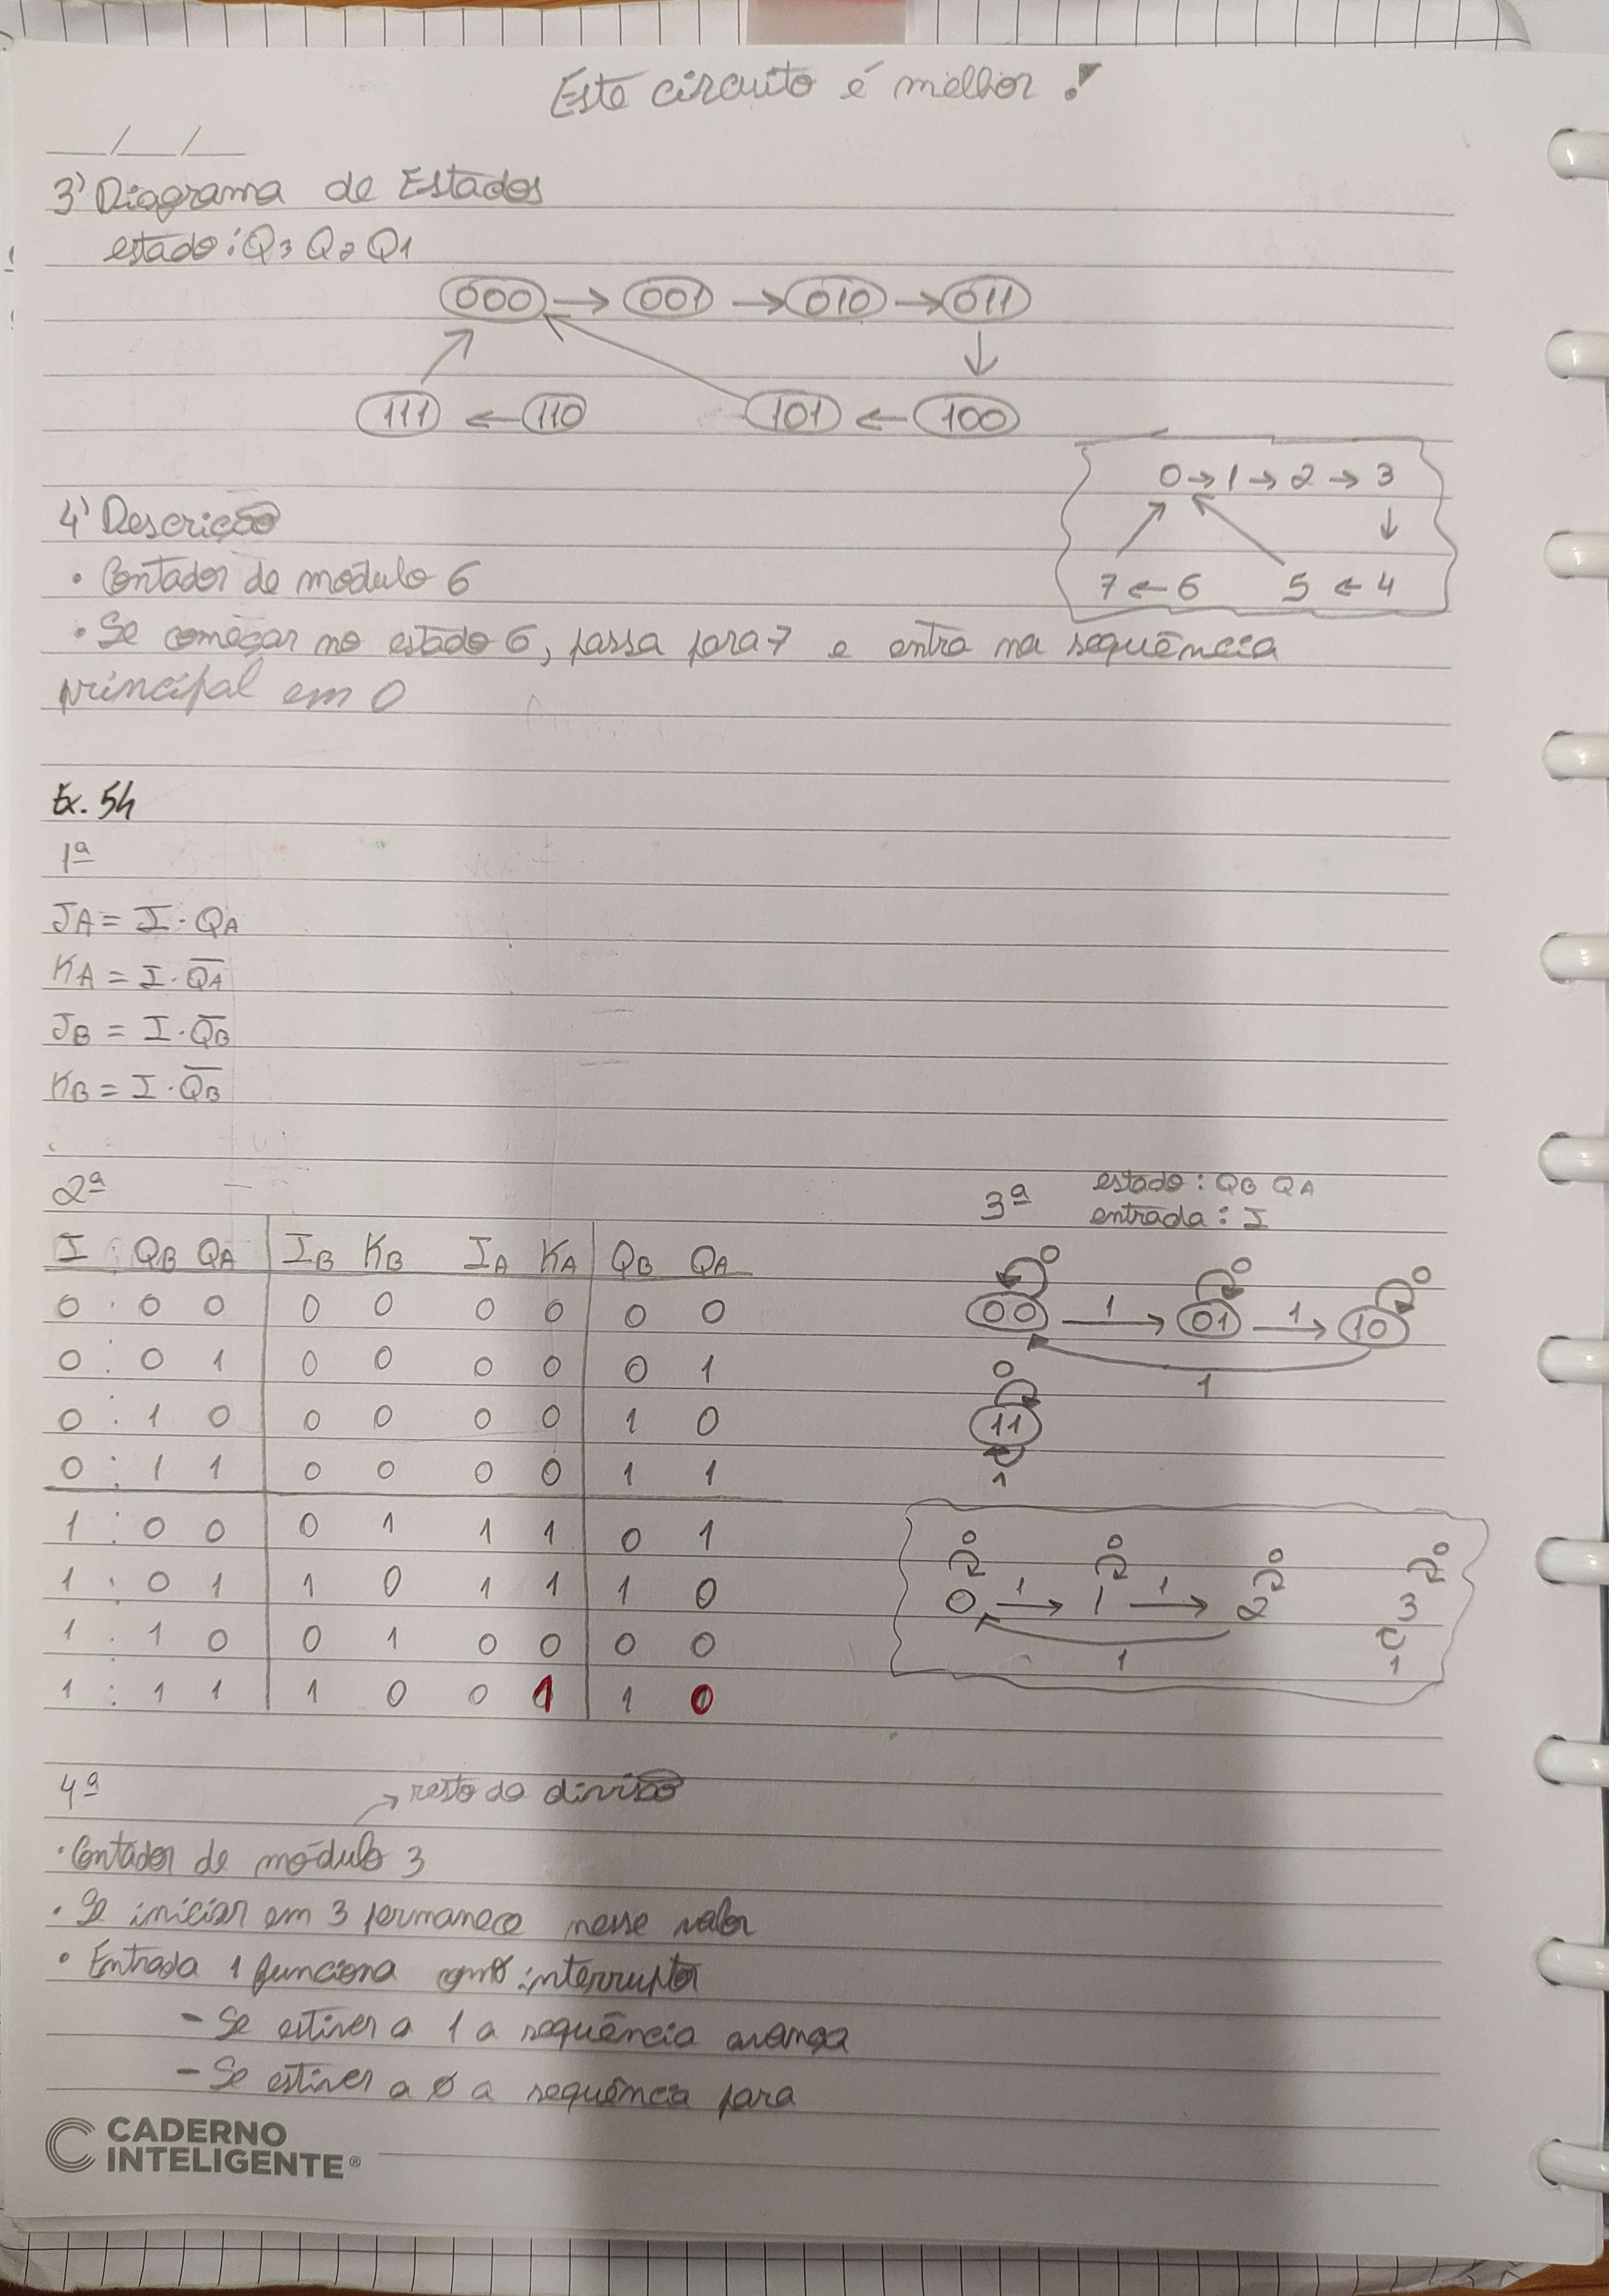 Este circuito é melhor!
__/__/__
3) Diagrama de Estados
estado: Q3 Q2 Q1
000 → 001 → 010 → 011
111 ← 110 101 ← 100
0 → 1 → 2 → 3
4) Descrição
7 ← 6 5 ← 4
• Contador de módulo 6
• Se começar no estado 6, passa para 7 e entra na sequência
principal em 0
Ex. 54
1ª
JA = I · QA
KA = I · Q̅A̅
JB = I · Q̅B̅
KB = I · Q̅B̅
2ª
3ª estado: QB QA
entrada: I
I : QB QA | IB KB IA KA | QB QA
0 : 0 0 | 0 0 0 0 | 0 0
0 : 0 1 | 0 0 0 0 | 0 1
0 : 1 0 | 0 0 0 0 | 1 0
0 : 1 1 | 0 0 0 0 | 1 1
1 : 0 0 | 0 1 1 1 | 0 1
1 : 0 1 | 1 0 1 1 | 1 0
1 : 1 0 | 0 1 0 0 | 0 0
1 : 1 1 | 1 0 0 1 | 1 0
0 0 0
00 1→ 01 1→ 10
1
0
11
1
0 0 0 0
0 1→ 1 1→ 2 3
1 1
4ª
→ resto da divisão
• Contador de módulo 3
• Se iniciar em 3 permanece nesse valor
• Entrada 1 funciona como interruptor
- Se estiver a 1 a sequência avança
- Se estiver a 0 a sequência para
CADERNO
INTELIGENTE®